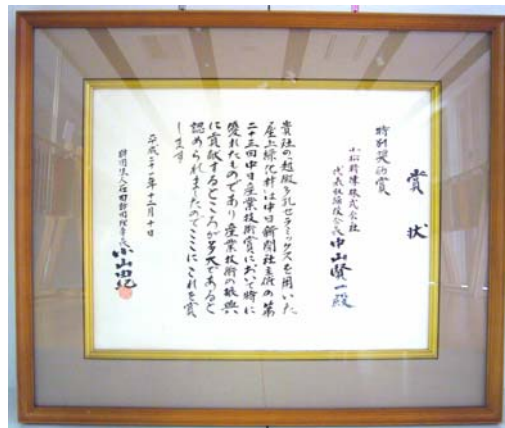 賞状
特別奨励賞
小松精練株式会社
代表取締役会長 中山賢一殿
貴社の「超微多孔セラミックスを用いた
屋上緑化材」は中日新聞社主催の第
二十三回中日産業技術賞において特に
優れたものであり産業技術の振興
に貢献するところが多大であると
認められましたのでここにこれを賞
します
平成二十一年十二月十日
小山田紀